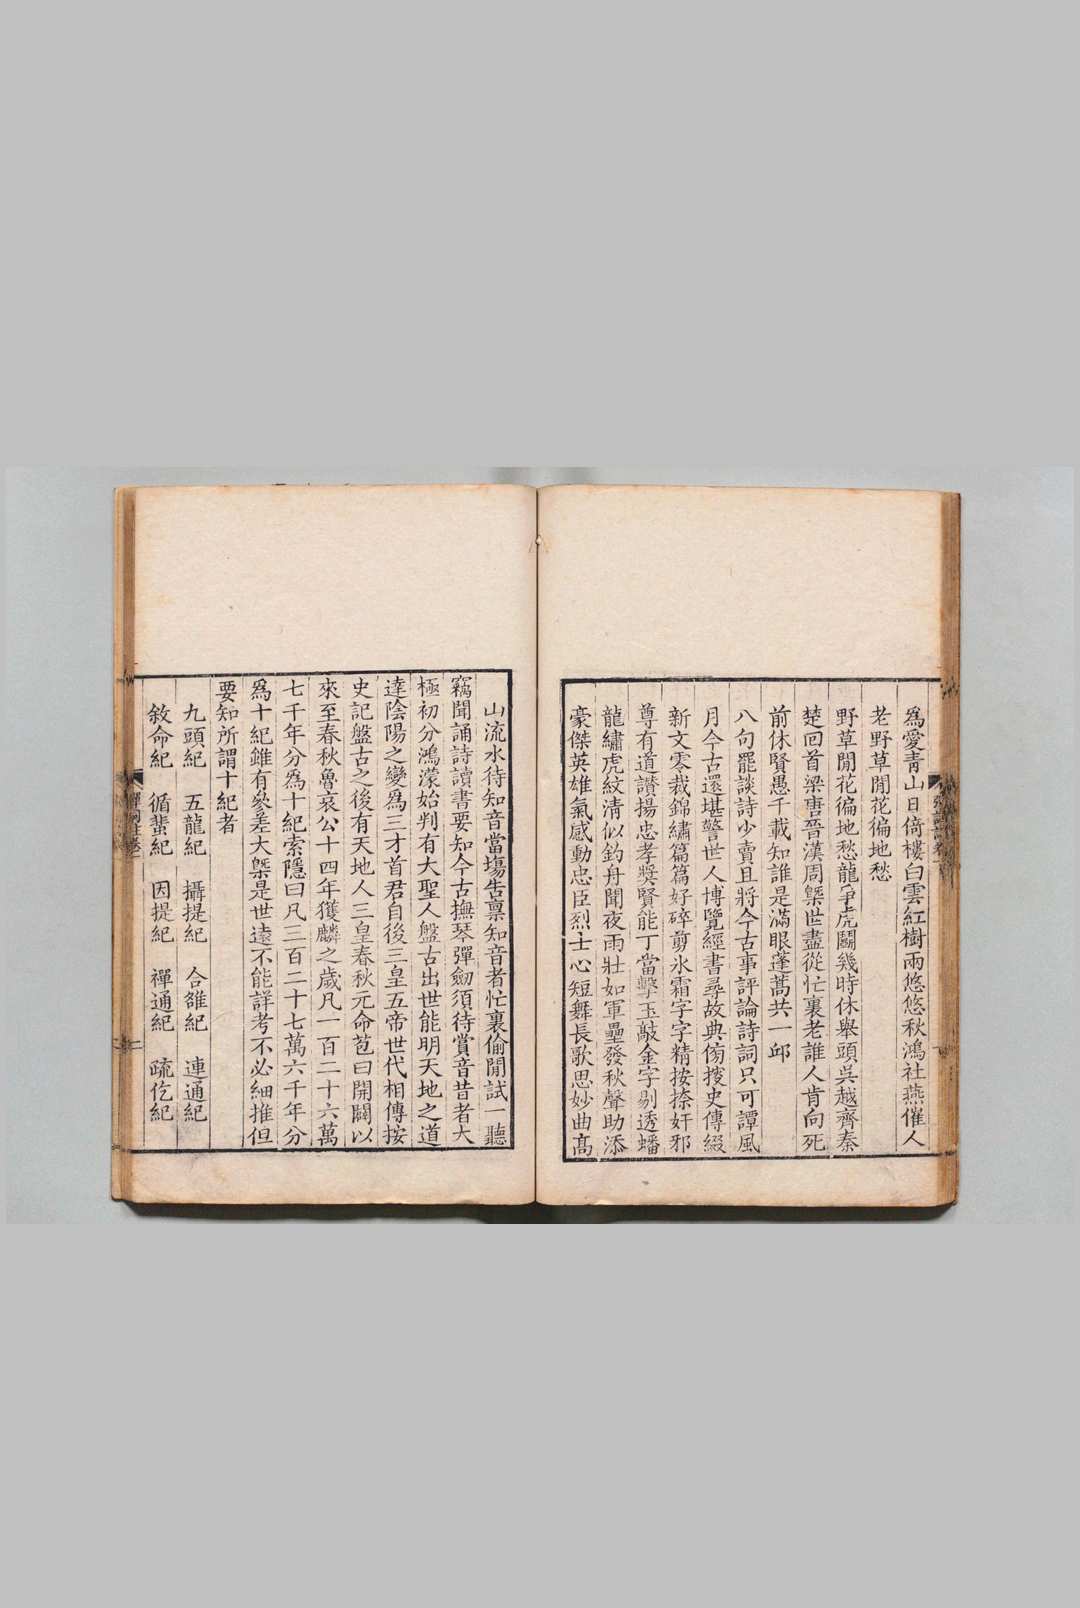 爲愛青山日倚樓白雲紅樹兩悠悠秋鴻社燕催人
老野草閒花徧地愁
野草閒花徧地愁龍爭虎鬬幾時休舉頭吳越齊秦
楚回首梁唐晉漢周槩世盡從忙裏老誰人肯向死
前休賢愚千載知誰是滿眼蓬蒿共一邱
八句罷談詩少賣且將今古事評論詩詞只可譚風
月今古還堪警世人博覽經書尋故典傍搜史傳綴
新文零裁錦繡篇篇好碎剪氷霜字字精按捺奸邪
尊有道讃揚忠孝獎賢能丁當擊玉敲金字剔透蟠
龍繡虎紋清似釣舟聞夜雨壯如軍壘發秋聲助添
豪傑英雄氣感動忠臣烈士心短舞長歌思妙曲高
山流水待知音當塲告稟知音者忙裏偷閒試一聽
竊聞誦詩讀書要知今古撫琴彈劒須待賞音昔者太
極初分鴻濛始判有大聖人盤古出世能明天地之道
達陰陽之變爲三才首君自後三皇五帝世代相傳按
史記盤古之後有天地人三皇春秋元命苞曰開闢以
來至春秋魯哀公十四年獲麟之歲凡一百二十六萬
七千年分爲十紀索隱曰凡三百二十七萬六千年分
爲十紀雖有參差大槩是世遠不能詳考不必細推但
要知所謂十紀者
九頭紀 五龍紀 攝提紀 合雒紀 連通紀
敘命紀 循蜚紀 因提紀 禪通紀 疏仡紀